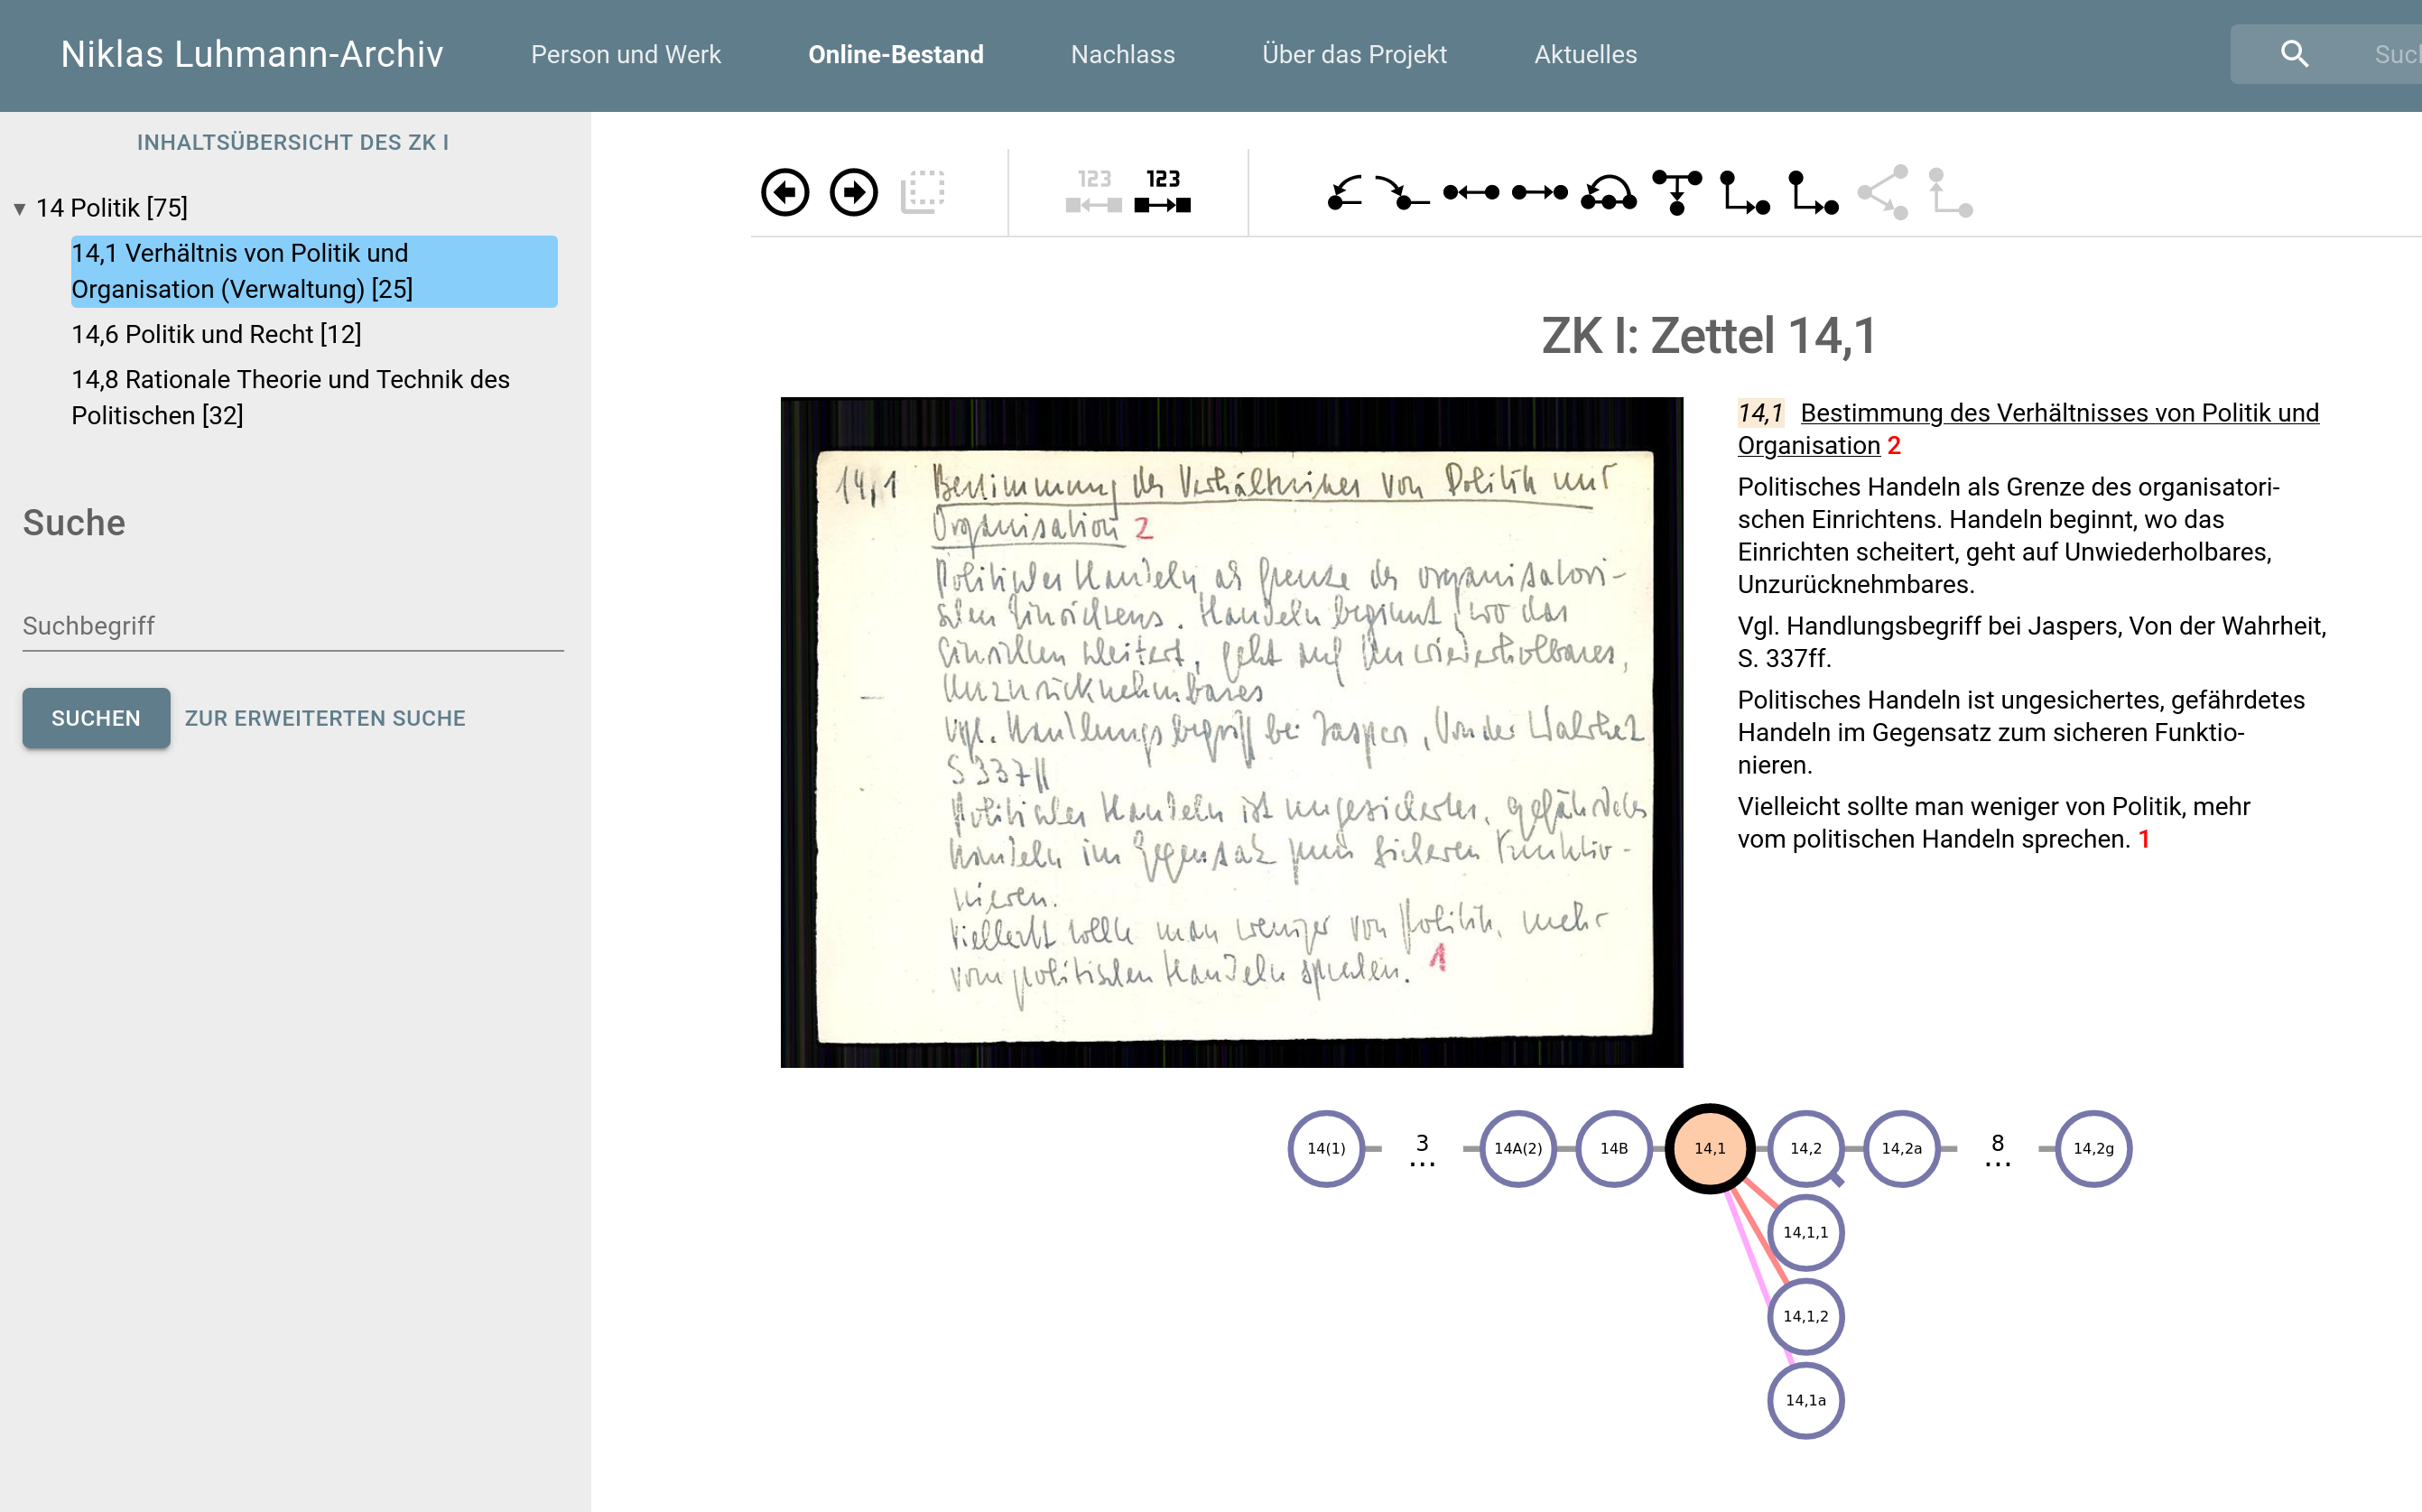 Niklas Luhmann-Archiv
Person und Werk
Online-Bestand
Nachlass
Über das Projekt
Aktuelles
INHALTSÜBERSICHT DES ZK I
▼ 14 Politik [75]
14,1 Verhältnis von Politik und
Organisation (Verwaltung) [25]
14,6 Politik und Recht [12]
14,8 Rationale Theorie und Technik des
Politischen [32]
Suche
Suchbegriff
SUCHEN
ZUR ERWEITERTEN SUCHE
123
123
ZK I: Zettel 14,1
14,1 Bestimmung des Verhältnisses von Politik und
Organisation 2
Politisches Handeln als Grenze des organisatori-
schen Einrichtens. Handeln beginnt, wo das
Einrichten scheitert, geht auf Unwiederholbares,
Unzurücknehmbares
Vgl. Handlungsbegriff bei Jaspers, Von der Wahrheit
S 337ff
Politisches Handeln ist ungesichertes, gefährdetes
Handeln im Gegensatz zum sicheren Funktio-
nieren.
Vielleicht sollte man weniger von Politik, mehr
vom politischen Handeln sprechen. 1
14,1 Bestimmung des Verhältnisses von Politik und
Organisation 2
Politisches Handeln als Grenze des organisatori-
schen Einrichtens. Handeln beginnt, wo das
Einrichten scheitert, geht auf Unwiederholbares,
Unzurücknehmbares.
Vgl. Handlungsbegriff bei Jaspers, Von der Wahrheit,
S. 337ff.
Politisches Handeln ist ungesichertes, gefährdetes
Handeln im Gegensatz zum sicheren Funktio-
nieren.
Vielleicht sollte man weniger von Politik, mehr
vom politischen Handeln sprechen. 1
14(1)
3
...
14A(2)
14B
14,1
14,2
14,2a
8
...
14,2g
14,1,1
14,1,2
14,1a